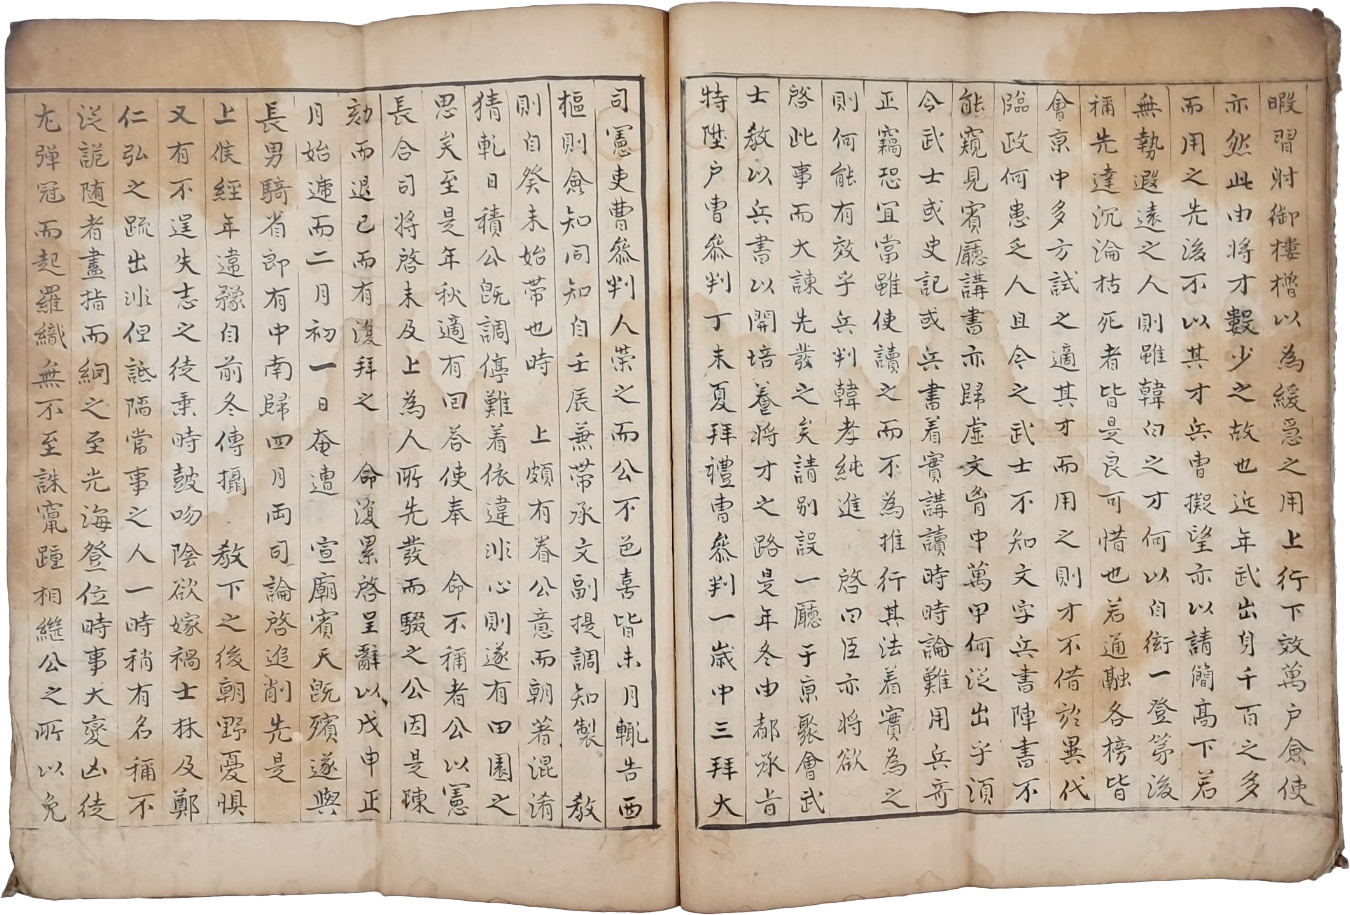 暇習射御樓櫓以為緩急之用上行下效萬戶僉使
亦然此由將才數少之故也近年武出身千百之多
而用之先後不以其才兵曹擬望亦以請簡高下若
無勢遐遠之人則雖韓白之才何以自衒一登第後
稱先達沉淪枯死者皆是良可惜也若通融各榜皆
會京中多方試之適其才而用之則才不借於異代
臨政何患乏人且今之武士不知文字兵書陣書不
能窺見賓廳講書亦歸虛文胷中萬甲何從出乎須
令武士或史記或兵書着實講讀時時論難用兵奇
正竊恐宜當雖使讀之而不為推行其法着實為之
則何能有效乎兵判韓孝純進 啓曰臣亦將欲
啓此事而大諫先發之矣請別設一廳于京聚會武
士教以兵書以開培養將才之路是年冬由都承旨
特陞戶曹叅判丁未夏拜禮曹叅判一歲中三拜大
司憲吏曹叅判人榮之而公不色喜皆未月輒告西
樞則僉知同知自壬辰兼帶承文副提調知製 教
則自癸未始帶也時 上頗有眷公意而朝著混淆
猜軋日積公旣調停難着依違非心則遂有田園之
思矣至是年秋適有回荅使奉 命不稱者公以憲
長合司將啓未及上為人所先發而駁之公因是竦
劾而退已而有復拜之 命復累啓呈辭以戊申正
月始遞而二月初一日奄遭 宣廟賓天旣殯遂與
長男騎省郎有中南歸四月両司論啓追削先是
上候經年違豫自前冬傳攝 教下之後朝野憂惧
又有不逞失志之徒乘時鼓吻陰欲嫁禍士林及鄭
仁弘之疏出非但詆陷當事之人一時稍有名稱不
從詭随者盡指而網之至光海登位時事大變凶徒
尤彈冠而起羅織無不至誅竄踵相繼公之所以免